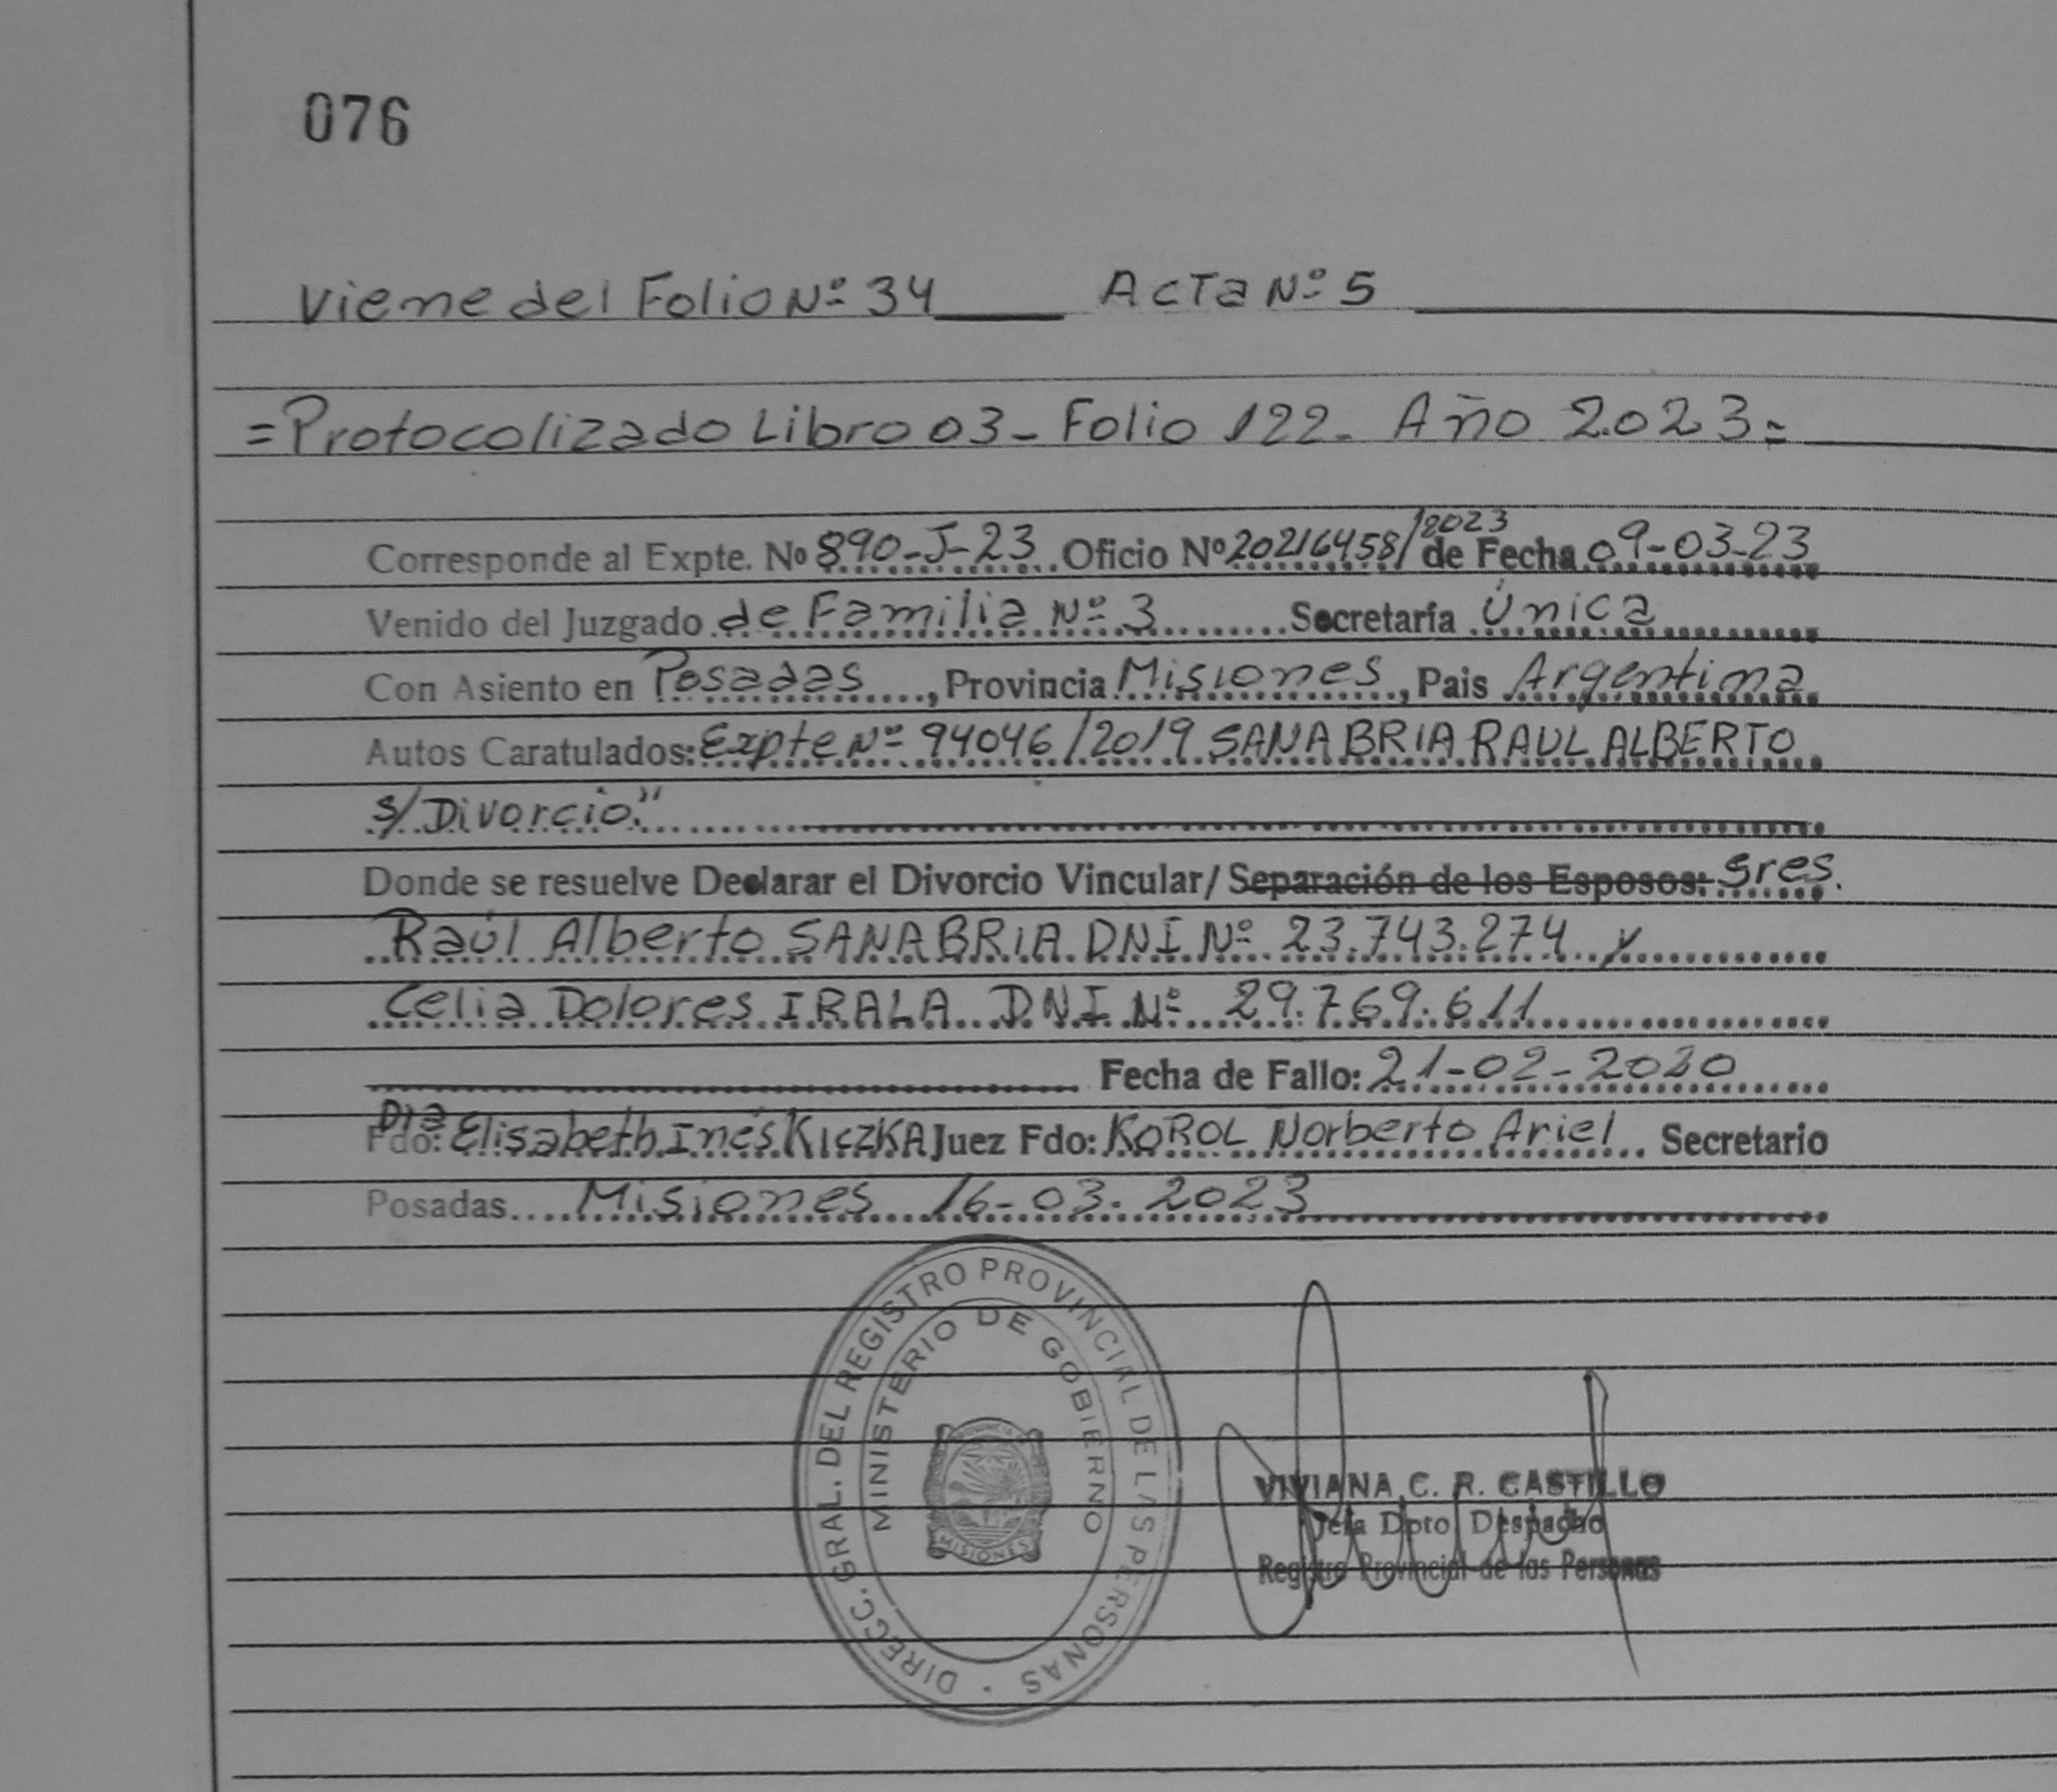 076
Viene del Folio Nº 34 Acta Nº 5
=Protocolizado Libro 03- Folio 122- Año 2023=
Corresponde al Expte. Nº 890-J-23 Oficio Nº 20216458/2023 de Fecha 09-03-23
Venido del Juzgado de Familia Nº 3 Secretaría Única
Con Asiento en Posadas, Provincia Misiones, Pais Argentina
Autos Caratulados: Expte Nº 94046/2019 SANABRIA RAUL ALBERTO
s/Divorcio."
Donde se resuelve Declarar el Divorcio Vincular/ Separación de los Esposos: Sres.
Raúl Alberto SANABRIA DNI Nº 23.743.274 y
Celia Dolores IRALA DNI Nº 29.769.611
Fecha de Fallo: 21-02-2020
Fdo: Dra Elisabeth Inés KICZKA Juez Fdo: KOROL Norberto Ariel Secretario
Posadas Misiones 16-03-2023
DIRECC. GRAL. DEL REGISTRO PROVINCIAL DE LAS PERSONAS
MINISTERIO DE GOBIERNO
MISIONES
VIVIANA C. R. CASTILLO
Jefa Dpto Despacho
Registro Provincial de las Personas